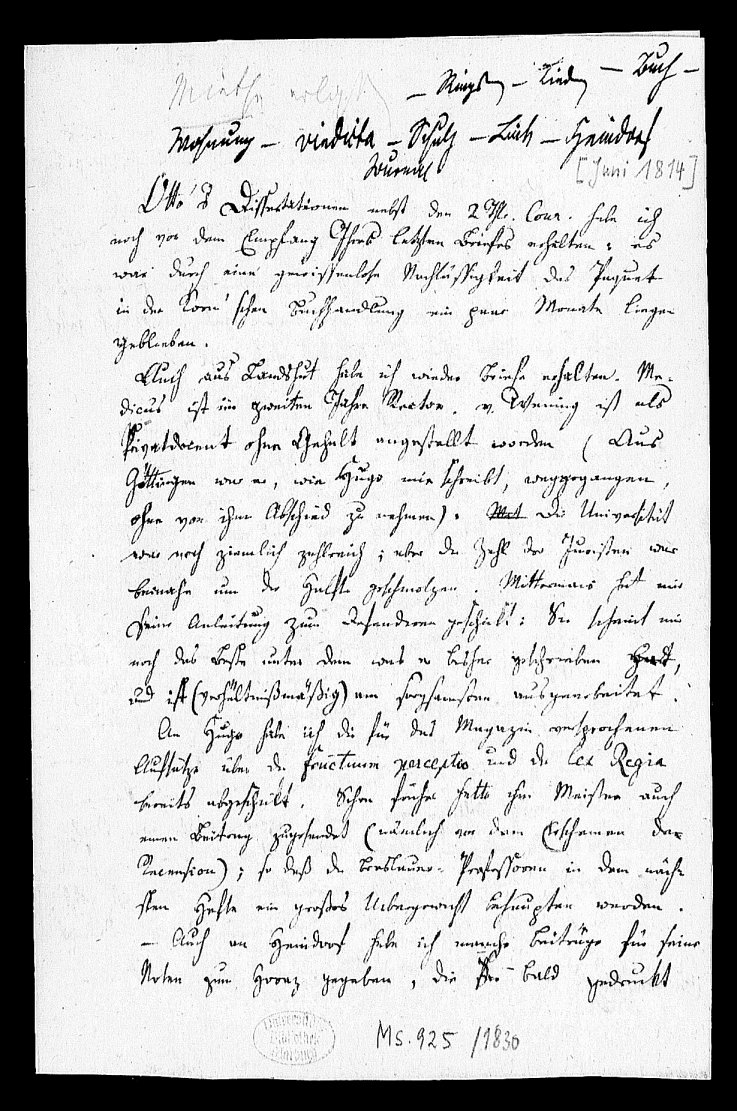 Miethe erlegt
– Ring – Lied – Buch –
Wohnung – vindicta – Schulz – Link – Heindorf
Journal
[Juni 1814]
Otto's Dissertationen nebst den 2 Thl. Cour. habe ich
noch vor dem Empfang Ihres letzten Briefes erhalten; es
war durch eine gewissenlose Nachlässigkeit das Paquet
in der Korn'schen Buchhandlung ein paar Monate liegen
geblieben.
Auch aus Landshut habe ich wieder Briefe erhalten. Me-
dicus ist im zweiten Jahre Rector. v. Wening ist als
Privatdocent ohne Gehalt angestellt worden (Aus
Göttingen war er, wie Hugo mir schreibt, weggegangen,
ohne von ihm Abschied zu nehmen). Die Universität
war noch ziemlich zahlreich; aber die Zahl der Juristen war
beinahe um die Hälfte geschmolzen. Mittermaier hat mir
seine Anleitung zum Referieren geschickt: Sie scheint mir
noch das Beste unter dem was er bisher geschrieben hat,
und ist (verhältnißmäßig) am sorgsamsten ausgearbeitet.
An Hugo habe ich die für das Magazin versprochenen
Aufsätze über die fructuum perceptio und die lex Regia
bereits abgeschickt. Schon früher hatte ihm Meister auch
einen Beitrag zugesendet (nämlich vor dem Erscheinen der
Recension); so daß die Breslauer Professoren in dem näch-
sten Hefte ein großes Uebergewicht behaupten werden.
– Auch an Heindorf habe ich manche Beiträge für seine
Noten zum Horaz gegeben, die bald gedruckt
Universitäts
Bibliothek
Marburg
Ms. 925 /1830